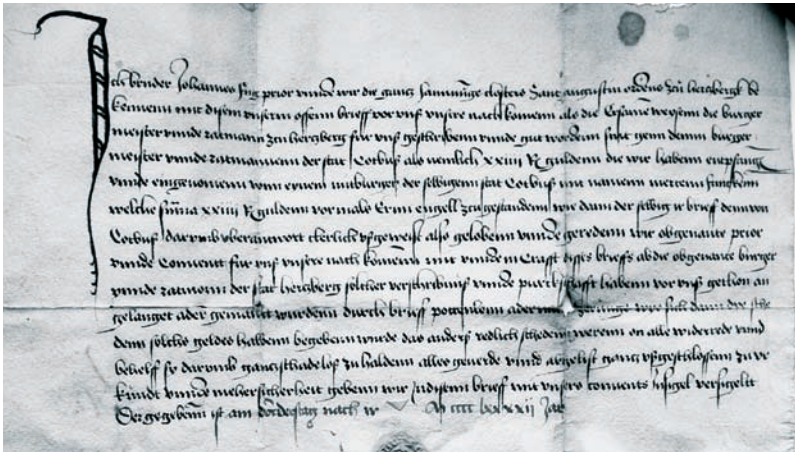 Ich bruder Johannes prior vnnde wir die gantz samnunge closters Sant augustin ordens zcu hertzbergk be
kennenn mit disem vnserm offenn brieff vor vnß vnsere nachkomenn als die Ersamē weysenn die burger
meister vnnde ratmann zcu hertzberg fur vnß geschribenn vnnde gut wordenn sint genn denn burger
meister vnnde ratmannenn der stat Cotbuß als nemlich xxiiii R guldenn die wir habenn empfangē
vnnde eingenomenn vonn eynem mitburger der selbigenn stat Cotbuß mit namenn
welche suma xxiiii R guldenn vormals engell zcugestandenn wie dann der selbig brieff denn von
Cotbuß darumb vberantwort clerlich vßgeweist also gelobenn vnnde geredenn wir obgenante prior
vnnde Conuent fur vnß vnsere nachkomenn mit vnnde in Crafft dises brieffs ab die obgenante burger
vnnde ratmann der stat hertzberg solcher verschribuns vnnde habenn vor vnß gethon an
gelanget ader gemanet wurdenn durch brieff pottenlenn ader wie sich dann die sache
denn solchs geldes halbenn begebenn wurde das anders redlich schedenn werenn on alle widerrede vnnd
behelff so darumb gantz schadeloß zu haldenn alles geuerde vnnd argelist gantz vßgeschlossenn zu vr
kundt vnnde mehersicherheit gebenn wir disenn brieff mit vnsers conuents Insigel versigelt
Der gegebenn ist am nach cccc lxxxxii Jar